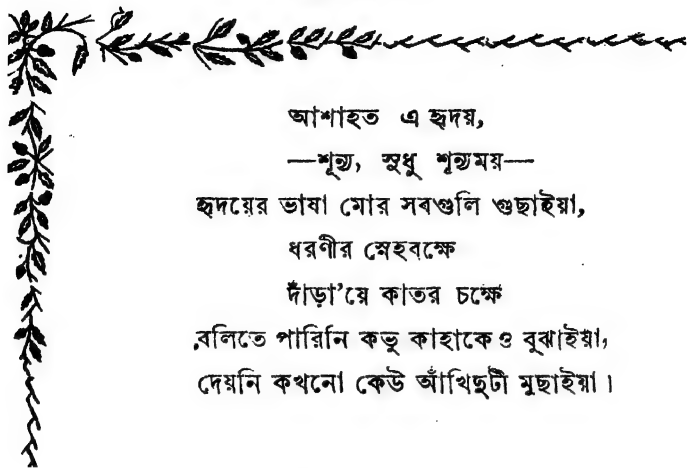 আশাহত এ হৃদয়,
—শূন্য, সুধু শূন্যময়—
হৃদয়ের ভাষা মোর সবগুলি গুছাইয়া,
ধরণীর স্নেহবক্ষে
দাঁড়া'য়ে কাতর চক্ষে
বলিতে পারিনি কভু কাহাকেও বুঝাইয়া,
দেয়নি কখনো কেউ আঁখিদুটী মুছাইয়া।